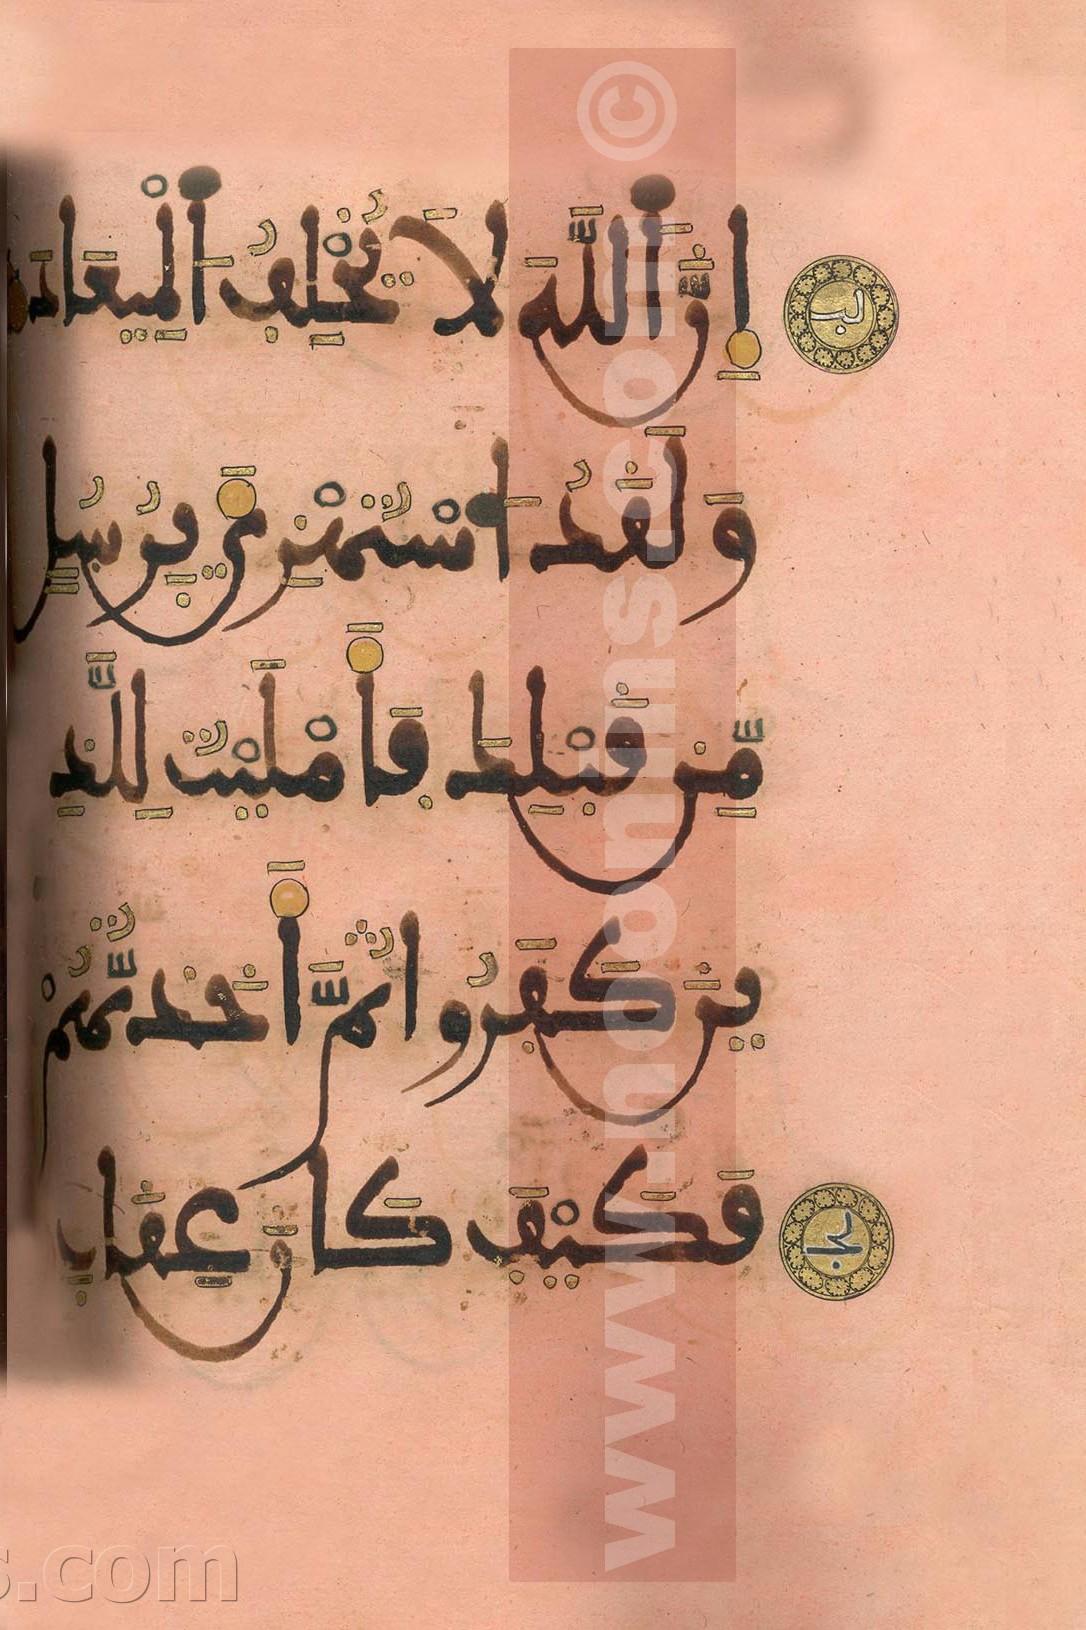 إِنَّ ٱللَّهَ لَا يُخْلِفُ ٱلْمِيعَادَ
وَلَقَدُ ٱسْتُهْزِئَ بِرُسُلٍ
مِّن قَبْلِكَ فَأَمْلَيْتُ لِلَّذِ
ينَ كَفَرُوا ثُمَّ أَخَذتُّهُمْ
فَكَيْفَ كَانَ عِقَابِ
s.com